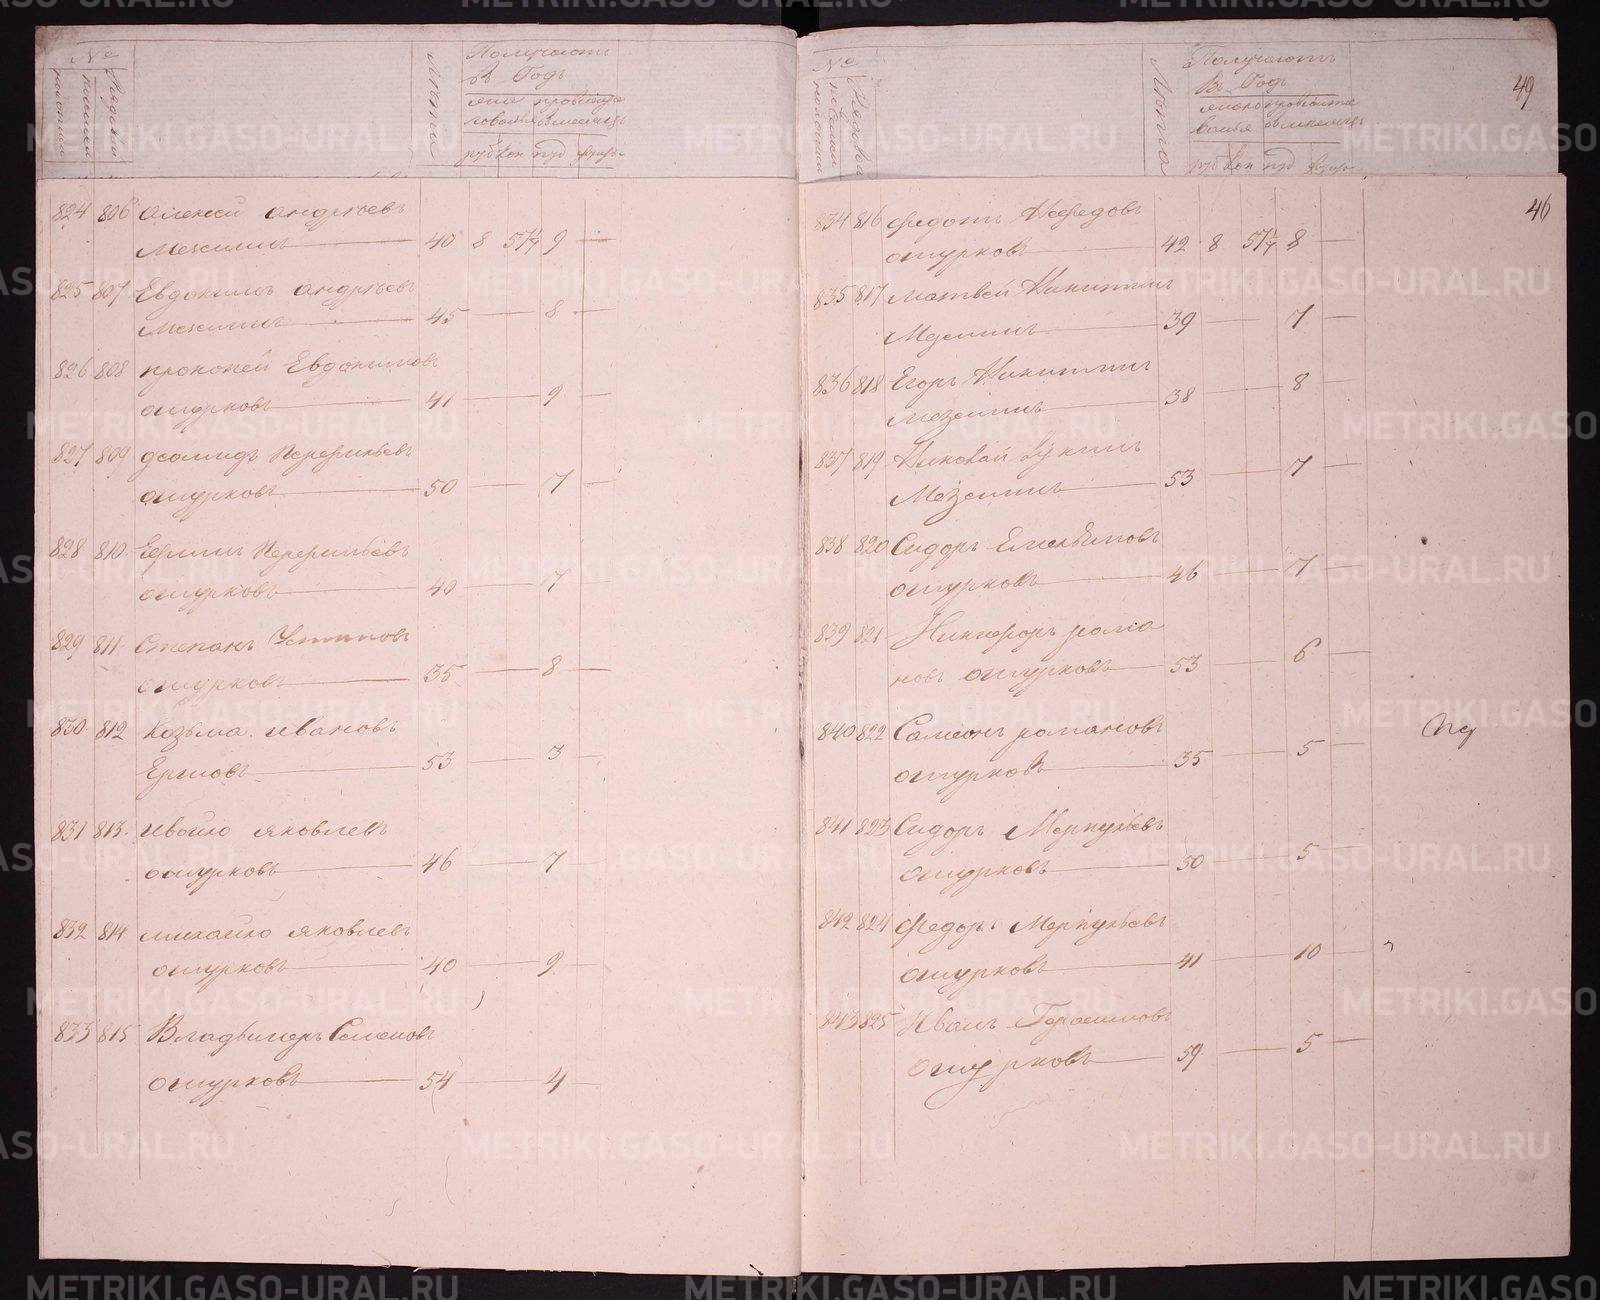 №
Лѣта
Получаютъ
въ Годъ
руб коп пуд
824 806 Алексей андрѣевъ
Мезенинъ 40 8 57¼ 9
825 807 Евдокимъ андрѣевъ
Мезенинъ 45 8
826 808 прокопей Евдокимовъ
ошурковъ 41 9
827 809 деомидъ Перфильевъ
ошурковъ 50 7
828 810 Ермилъ Перфильевъ
ошурковъ 40 7
829 811 Степанъ Устиновъ
ошурковъ 35 8
830 812 Козьма ивановъ
53 3
831 813 ивайло яковлевъ
ошурковъ 46 7
832 814 михайло яковлевъ
ошурковъ 40 9
833 815 Владьимеръ Семеновъ
ошурковъ 54 4
№
Лѣта
Получаютъ
Въ Годъ
руб коп пуд
49
46
834 816 федотъ
ошурковъ 42 8 57¼ 8
835 817 матвей Никитинъ
Мезенинъ 39 7
836 818 Егоръ Никитинъ
мезенинъ 38 8
837 819 Николай Лукинъ
Мезенинъ 53 7
838 820 Сидоръ Емельяновъ
ошурковъ 46 7
839 821 Никифоръ рома
новъ ошурковъ 53 6
840 822 Самсонъ романовъ
ошурковъ 35 5
841 823 Сидоръ Меркульевъ
ошурковъ 50 5
842 824 Федоръ Меркульевъ
ошурковъ 41 10
843 825 Иванъ Герасимовъ
ошурковъ 59 5
METRIKI.GASO-URAL.RU